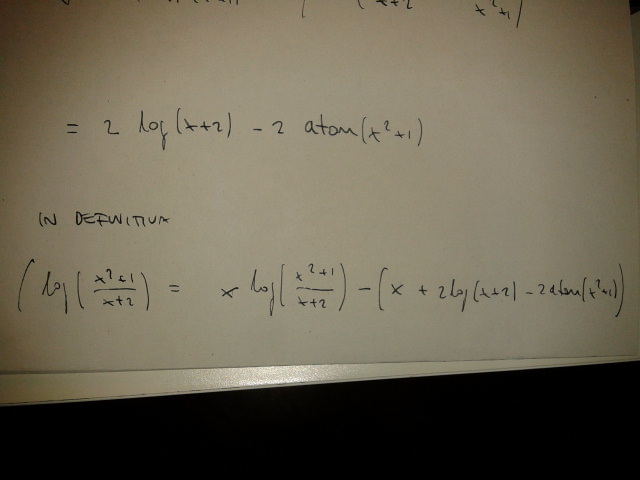 x+2 x²+1
= 2 log(x+2) - 2 atan(x²+1)
IN DEFINITIVA
∫ log(x²+1/x+2) = x log(x²+1/x+2) - (x + 2log(x+2) - 2atan(x²+1))